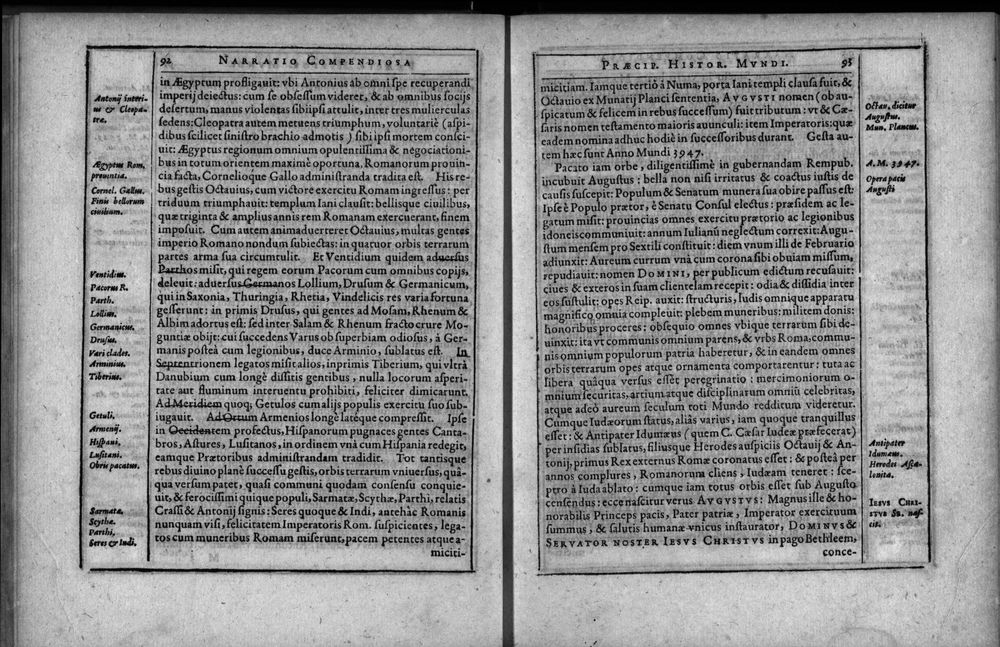 92 NARRATIO COMPENDIOSA
in Ægyptum profligauit: vbi Antonius ab omni spe recuperandi
imperij deiectus: cum se obsessum videret, & ab omnibus socijs
desertum, manus violentas sibiipsi attulit, inter tres mulierculas
sedens: Cleopatra autem metuens triumphum, voluntariè (aspi-
dibus scilicet sinistro brachio admotis) sibi ipsi mortem consci-
uit: Ægyptus regionum omnium opulentissima & negociationi-
bus in totum orientem maximè oportuna. Romanorum prouin-
cia facta, Cornelioque Gallo administranda tradita est. His re-
bus gestis Octauius, cum victore exercitu Romam ingressus: per
triduum triumphauit: templum Iani clausit: bellisque ciuilibus,
quæ triginta & amplius annis rem Romanam exercuerant, finem
imposuit. Cum autem animaduerteret Octauius, multas gentes
imperio Romano nondum subiectas: in quatuor orbis terrarum
partes arma sua circumtulit. Et Ventidium quidem aduersus
Parthos misit, qui regem eorum Pacorum cum omnibus copijs,
deleuit: aduersus Germanos Lollium, Drusum & Germanicum,
qui in Saxonia, Thuringia, Rhetia, Vindelicis res varia fortuna
gesserunt: in primis Drusus, qui gentes ad Mosam, Rhenum &
Albim adortus est: sed inter Salam & Rhenum fracto crure Mo-
guntiæ obijt: cui succedens Varus ob superbiam odiosus, à Ger-
manis posteà cum legionibus, duce Arminio, sublatus est. In
Septentrionem legatos misit alios, inprimis Tiberium, qui vltrà
Danubium cum longè dissitis gentibus, nulla locorum asperi-
tate aut fluminum interuentu prohibiti, feliciter dimicarunt.
Ad Meridiem quoq; Getulos cum alijs populis exercitu suo sub-
iugauit. Ad Ortum Armenios longè latéque compressit. Ipse
in Occidentem profectus, Hispanorum pugnaces gentes Canta-
bros, Astures, Lusitanos, in ordinem vnà cum Hispania redegit,
eamque Prætoribus administrandam tradidit. Tot tantisque
rebus diuino planè successu gestis, orbis terrarum vniuersus, quâ-
qua versum patet, quasi communi quodam consensu conquie-
uit, & ferocissimi quique populi, Sarmatæ, Scythæ, Parthi, relatis
Crassi & Antonij signis: Seres quoque & Indi, antehàc Romanis
nunquam visi, felicitatem Imperatoris Rom. suspicientes, lega-
tos cum muneribus Romam miserunt, pacem petentes atque a-
miciti-
Antonij interi-
tus & Cleopa-
træ.
Ægyptus Rom.
prouintia.
Cornel. Gallus.
Finis bellorum
ciuilium.
Ventidius.
Pacorus R.
Parth.
Lollius.
Germanicus.
Drusus.
Vari clades.
Arminius.
Tiberius.
Getuli.
Armenij.
Hispani,
Lusitani.
Orbis pacatus.
Sarmatæ.
Scythæ.
Parthi,
Seres & Indi.
PRÆCIP. HISTOR. MVNDI. 93
micitiam. Iamque tertiò à Numa, porta Iani templi clausa fuit, &
Octauio ex Munatij Planci sententia, AVGVSTI nomen (ob au-
spicatum & felicem in rebus successum) fuit tributum: vt & Cæ-
saris nomen testamento maioris auunculi: item Imperatoris: quæ
eadem nomina adhuc hodiè in successoribus durant. Gesta au-
tem hæc sunt Anno Mundi 3947.
Pacato iam orbe, diligentissimè in gubernandam Rempub.
incubuit Augustus: bella non nisi irritatus & coactus iustis de
causis suscepit: Populum & Senatum munera sua obire passus est:
Ipse è Populo prætor, è Senatu Consul electus: præsidem ac le-
gatum misit: prouincias omnes exercitu prætorio ac legionibus
idoneis communiuit: annum Iulianū neglectum correxit: Augu-
stum mensem pro Sextili constituit: diem vnum illi de Februario
adiunxit: Aureum currum vnà cum corona sibi obuiam missum,
repudiauit: nomen DOMINI, per publicum edictum recusauit:
ciues & exteros in suam clientelam recepit: odia & dissidia inter
eos sustulit: opes Reip. auxit: structuris, ludis omnique apparatu
magnifico omnia compleuit: plebem muneribus: militem donis:
honoribus proceres: obsequio omnes vbique terrarum sibi de-
uinxit: ita vt communis omnium parens, & vrbs Roma, commu-
nis omnium populorum patria haberetur, & in eandem omnes
orbis terrarum opes atque ornamenta comportarentur: tuta ac
libera quâqua versus esset peregrinatio: mercimoniorum o-
mnium securitas, artium atque disciplinarum omniū celebritas,
atque adeò aureum seculum toti Mundo redditum videretur.
Cumque Iudæorum status, aliàs varius, iam quoque tranquillus
esset: & Antipater Idumæus (quem C. Cæsar Iudeæ præfecerat)
per insidias sublatus, filiusque Herodes auspiciis Octauij & An-
tonij, primus Rex externus Romæ coronatus esset: & posteà per
annos complures, Romanorum cliens, Iudæam teneret: sce-
ptro à Iuda ablato: cumque iam totus orbis esset sub Augusto
censendus: ecce nascitur verus AVGVSTVS: Magnus ille & ho-
norabilis Princeps pacis, Pater patriæ, Imperator exercituum
summus, & salutis humanæ vnicus instaurator, DOMINVS &
SERVATOR NOSTER IESVS CHRISTVS in pago Bethleem,
conce-
Octau. dicitur
Augustus.
Mun. Plancus.
A.M. 3947.
Opera pacis
Augusti
Antipater
Idumæus.
Herodes Asca-
lonita.
IESVS CHRI-
STVS Sr. nas-
cit.